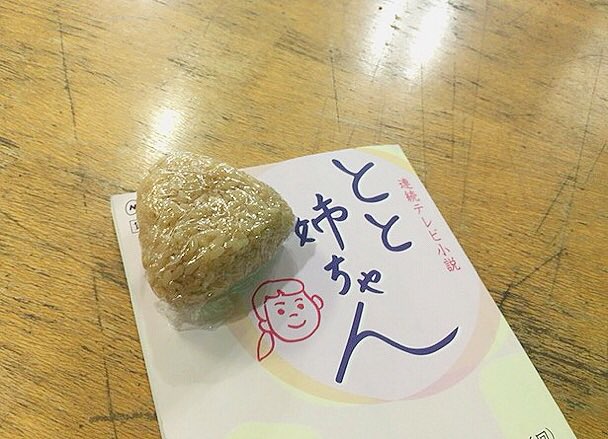 連続テレビ小説
とと
姉ちゃん